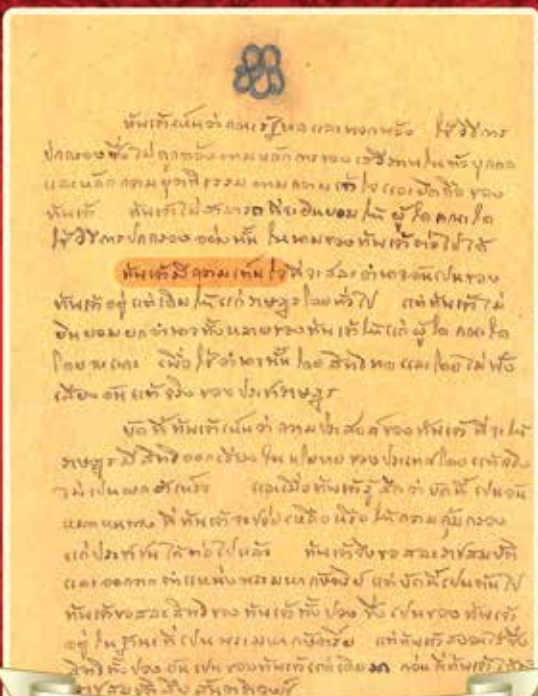 ข้าพเจ้าเห็นว่าคณะรัฐบาลและพวกพ้อง ใช้วิธีการ
ปกครองซึ่งไม่ถูกต้องตามหลักการของเสรีภาพในตัวบุคคล
และหลักความยุตติธรรมตามความเข้าใจและยึดถือของ
ข้าพเจ้า ข้าพเจ้าไม่สามารถที่จะยินยอมให้ผู้ใด คณะใด
ใช้วิธีการปกครองอย่างนั้น ในนามของข้าพเจ้าต่อไปได้
ข้าพเจ้ามีความเต็มใจที่จะสละอำนาจอันเป็นของ
ข้าพเจ้าอยู่แต่เดิมให้แก่ราษฎรโดยทั่วไป แต่ข้าพเจ้าไม่
ยินยอมยกอำนาจทั้งหลายของข้าพเจ้าให้แก่ผู้ใด คณะใด
โดยฉะเพาะ เพื่อใช้อำนาจนั้นโดยสิทธิขาดและโดยไม่ฟัง
เสียงอันแท้จริงของประชาราษฎร
บัดนี้ข้าพเจ้าเห็นว่า ความประสงค์ของข้าพเจ้าที่จะให้
ราษฎรมีสิทธิออกเสียงในนโยบายของประเทศโดยแท้จริง
ไม่เป็นผลสำเร็จ และเมื่อข้าพเจ้ารู้สึกว่าบัดนี้เป็นอัน
หมดหนทางที่ข้าพเจ้าจะช่วยเหลือหรือให้ความคุ้มครอง
แก่ประชาชนได้ต่อไปแล้ว ข้าพเจ้าจึงขอสละราชสมบัติ
และออกจากตำแหน่งพระมหากษัตริย์ แต่บัดนี้เป็นต้นไป
ข้าพเจ้าขอสละสิทธิของข้าพเจ้าทั้งปวง ซึ่งเป็นของข้าพเจ้า
อยู่ในฐานะที่เป็นพระมหากษัตริย์ แต่ข้าพเจ้าสงวนไว้ซึ่ง
สิทธิทั้งปวงอันเป็นของข้าพเจ้าแต่เดิมมา ก่อนที่ข้าพเจ้าได้รับ
ราชสมบัติสืบสันตติวงศ์